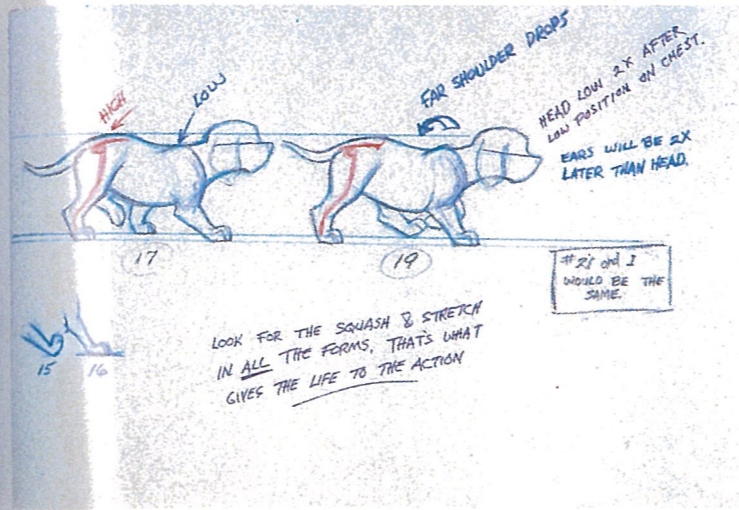 HIGH
LOW
FAR SHOULDER DROPS
HEAD LOW 2X AFTER
LOW POSITION ON CHEST.
EARS WILL BE 2X
LATER THAN HEAD.
17
19
#21 and 1
WOULD BE THE
SAME.
15
16
LOOK FOR THE SQUASH & STRETCH
IN ALL THE FORMS, THAT'S WHAT
GIVES THE LIFE TO THE ACTION